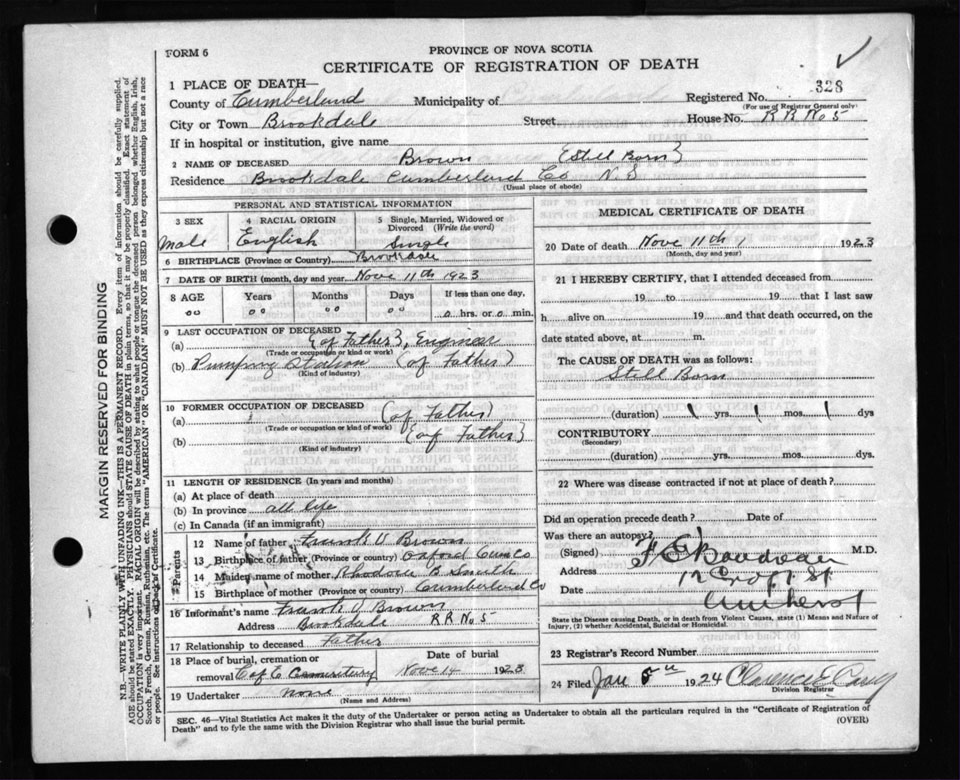 FORM 6
PROVINCE OF NOVA SCOTIA
CERTIFICATE OF REGISTRATION OF DEATH
1 PLACE OF DEATH—
Registered No. 328
(For use of Registrar General only)
County of Cumberland Municipality of
City or Town Brookdale Street House No. R R No 5
If in hospital or institution, give name
2 NAME OF DECEASED Brown {Still Born}
Residence Brookdale Cumberland Co N. S
(Usual place of abode)
PERSONAL AND STATISTICAL INFORMATION
3 SEX 4 RACIAL ORIGIN 5 Single, Married, Widowed or Divorced (Write the word)
Male English Single
6 BIRTHPLACE (Province or Country) Brookdale
7 DATE OF BIRTH (month, day and year) Nove 11th 1923
8 AGE Years Months Days If less than one day,
00 00 00 00 0 hrs. or 0 min.
9 LAST OCCUPATION OF DECEASED
(a) {of Father}, Engineer
(Trade or occupation or kind of work)
(b) Pumping Station (of Father)
(Kind of industry)
10 FORMER OCCUPATION OF DECEASED
(a) (of Father)
(Trade or occupation or kind of work)
(b) {of Father}
(Kind of industry)
11 LENGTH OF RESIDENCE (In years and months)
(a) At place of death
(b) In province all life
(c) In Canada (if an immigrant)
Parents
12 Name of father Frank V Brown
13 Birthplace of father (Province or country) Oxford Cum Co
14 Maiden name of mother B Smith
15 Birthplace of mother (Province or country) Cumberland Co
16 Informant's name Frank V Brown
Address Brookdale R R No 5
17 Relationship to deceased Father
18 Place of burial, cremation or Date of burial
removal C of E Cemeterry Nove 14 1923
19 Undertaker none
(Name and Address)
MEDICAL CERTIFICATE OF DEATH
20 Date of death Nove 11th 1923
(Month, day and year)
21 I HEREBY CERTIFY, that I attended deceased from
19 to 19 that I last saw
h alive on 19 and that death occurred, on
date stated above, at m.
The CAUSE OF DEATH was as follows:
Still Born
(duration) yrs. mos. dys
CONTRIBUTORY
(Secondary)
(duration) yrs. mos. dys.
22 Where was disease contracted if not at place of death?
Did an operation precede death? Date of
Was there an autopsy?
(Signed) M.D.
Address 12 Croft St
Date Amherst
State the Disease causing Death, or in death from Violent Causes, state (1) Means and Nature of
Injury, (2) whether Accidental, Suicidal or Homicidal.
23 Registrar's Record Number
24 Filed Jan 1924 Clarence E Casey
Division Registrar
SEC. 46—Vital Statistics Act makes it the duty of the Undertaker or person acting as Undertaker to obtain all the particulars required in the "Certificate of Registration of
Death" and to fyle the same with the Division Registrar who shall issue the burial permit. (OVER)
MARGIN RESERVED FOR BINDING
N.B.—WRITE PLAINLY WITH UNFADING INK—THIS IS A PERMANENT RECORD. Every item of information should be carefully supplied.
AGE should be stated EXACTLY. PHYSICIANS should STATE CAUSE OF DEATH in plain terms, so that it may be properly classified. Exact statement of
OCCUPATION is very important. RACIAL ORIGIN will be described by stating to what people or tongue the deceased person belonged whether English, Irish,
Scotch, French, German, Russian, Ruthenian, etc. The terms "AMERICAN" OR "CANADIAN" MUST NOT BE USED as they express citizenship but not a race
or people. See instructions on back of Certificate.